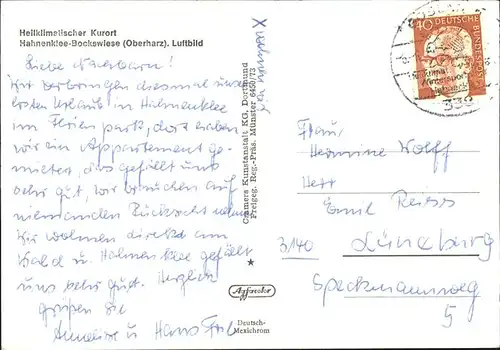 Heilklimatischer Kurort
Hahnenklee-Bockswiese (Oberharz). Luftbild
Liebe Nachbarn!
Wir verbringen diesmal unse
ersten Urlaub in Hahnenklee
im Ferienpark, dort haben
wir ein Appartement ge-
mietet, das gefällt uns
sehr gut, wir brauchen auf
niemanden Rücksicht nehmen
Wir wohnen direkt am
Wald u. Hahnenklee gefällt
uns sehr gut. Herzlich
grüßen Sie
Annelise u Hans
Cramers Kunstanstalt KG, Dortmund
Freigeg. Reg.-Präs. Münster 6450/73
Agfacolor
Deutsch-
Mexichrom
40 DEUTSCHE
BUNDESPOST
Frau
Hermine Wolff
Herr
Emil Reiss
3140 Lüneburg
Speckmannweg
5